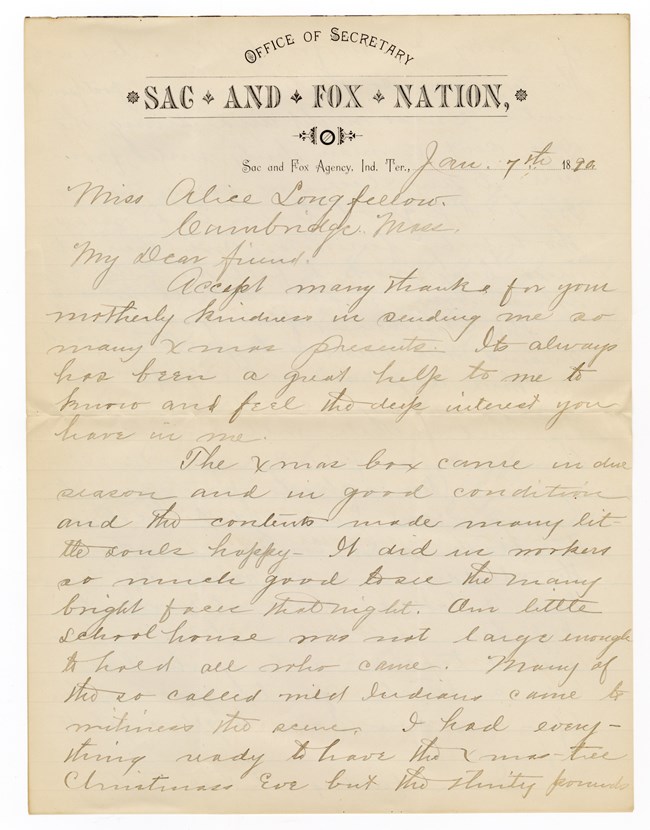 OFFICE OF SECRETARY
SAC AND FOX NATION,
Sac and Fox Agency, Ind. Ter., Jan. 7th 1890
Miss Alice Longfellow.
Cambridge, Mass.
My Dear friend.
Accept many thanks for your
motherly kindness in sending me so
many Xmas presents. Its always
has been a great help to me to
know and feel the deep interest you
have in me.
The Xmas box came in due
season and in good condition
and the contents made many lit-
tle souls happy- It did us workers
so much good to see the many
bright faces that night. Our little
school house was not large enough
to hold all who came. Many of
the so called wild Indians came to
witiness the scene. I had every-
thing ready to have the Xmas-tree
Christmass Eve but the thirty pounds